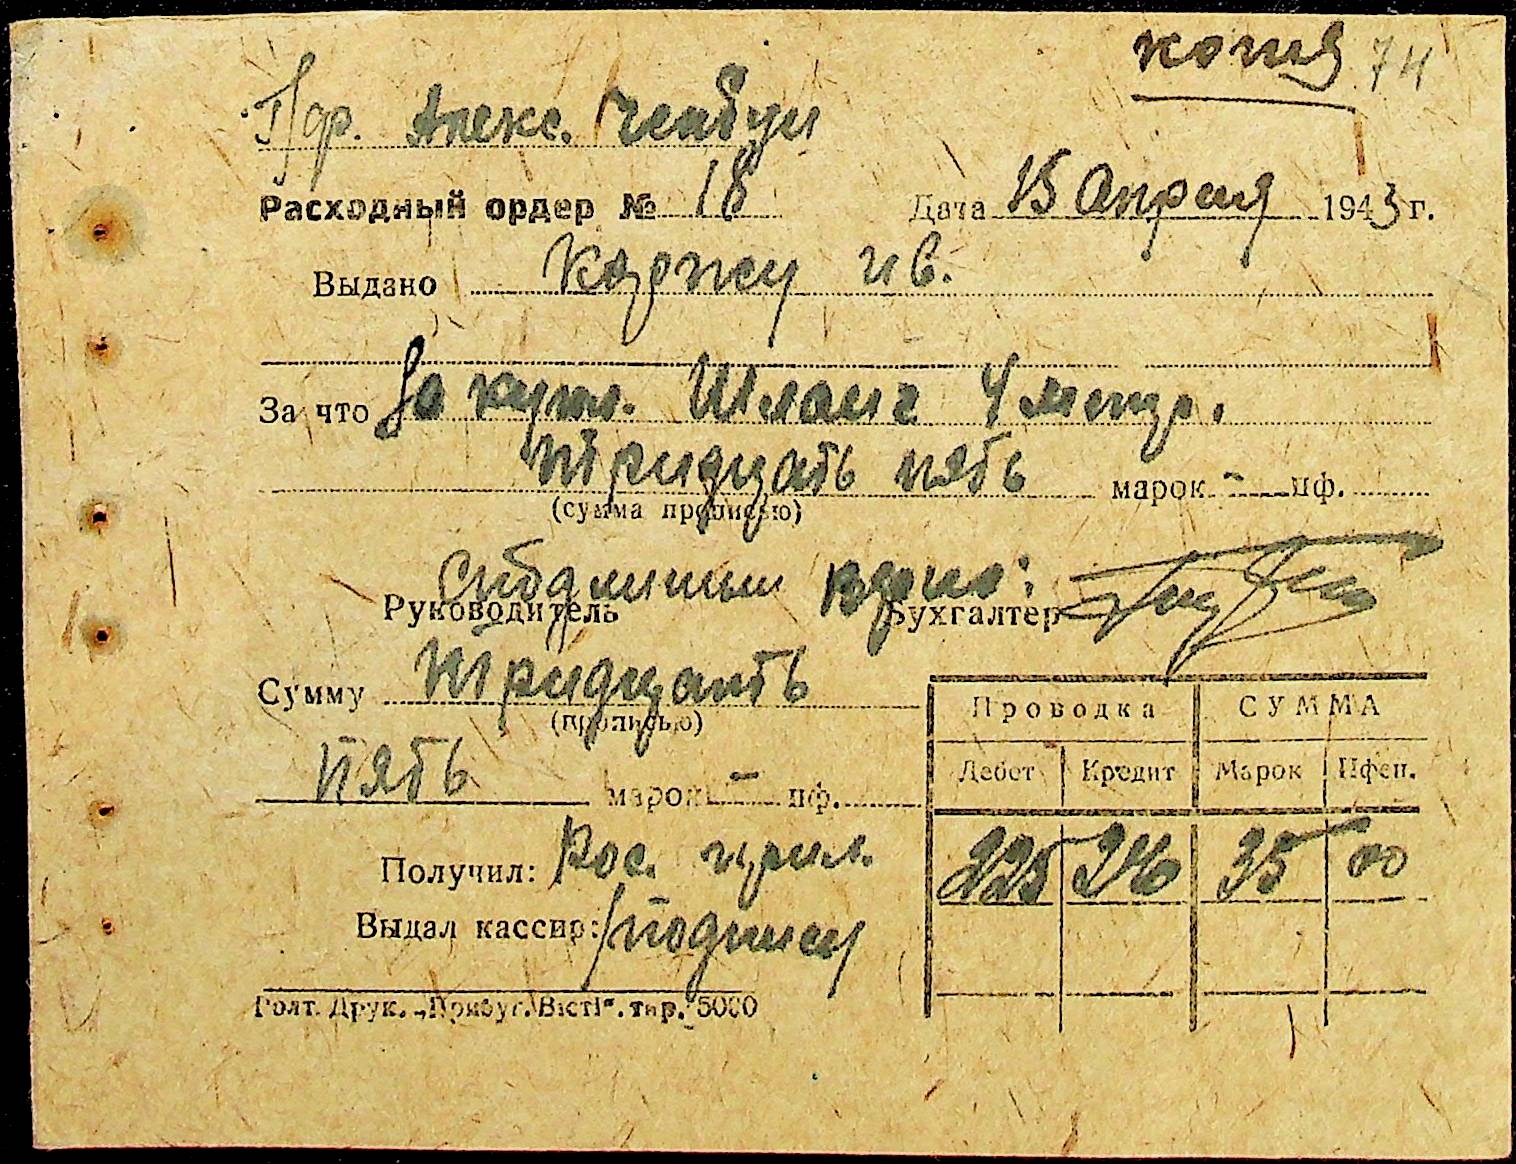 копия 74
Алекс.
Расходный ордер № 18 Дата 15 Апреля 1943 г.
Выдано Коржу Ив.
За что За купл. Шланг 4 метр.
Тридцать пять марок - пф.
(сумма прописью)
Руководитель верно: Бухгалтер
Сумму Тридцать
(прописью)
пять марок - пф.
Получил:
Выдал кассир: /подписи/
Голт. Друк. „Прибуг. Вісті". тир. 5000
Проводка СУММА
Дебет Кредит Марок Пфен.
225 246 35 00